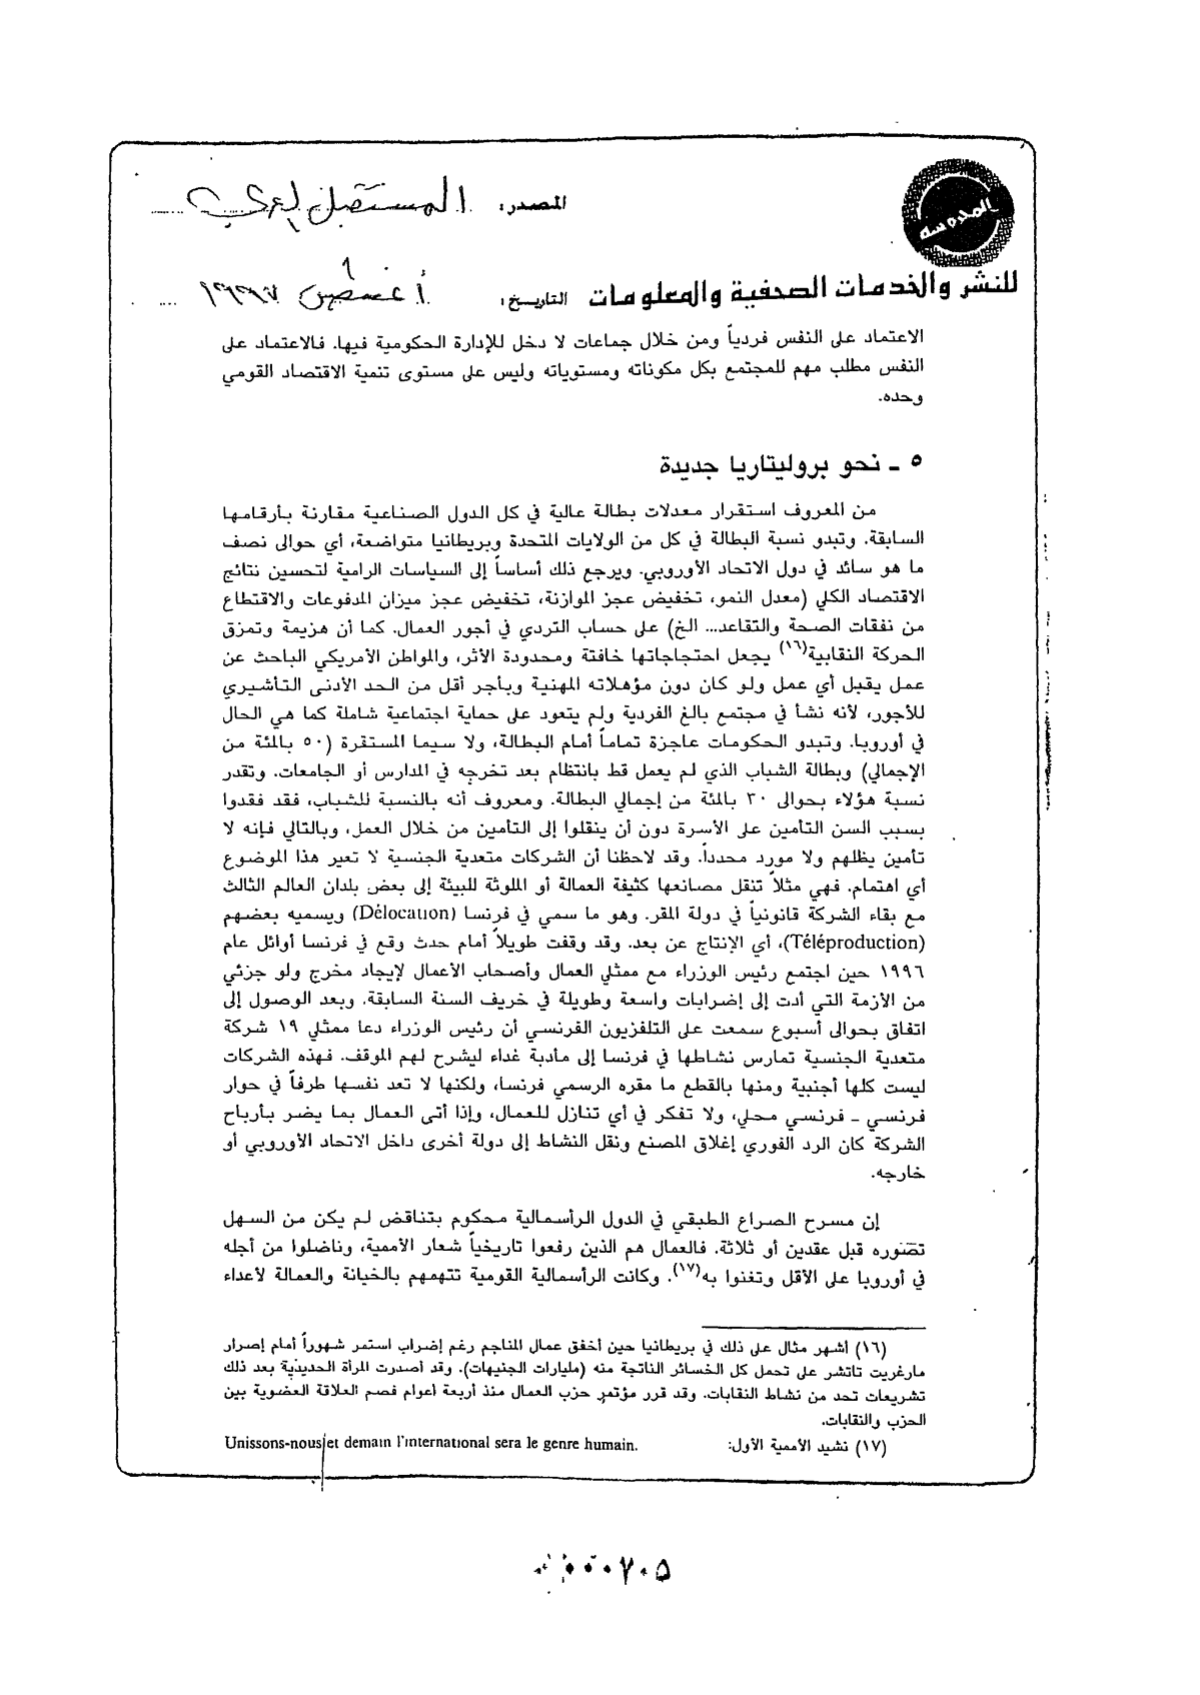 المدرسة
المصدر: المستقبل العربي
للنشر والخدمات الصحفية والمعلومات
التاريخ: أغسطس ١٩٩٧
الاعتماد على النفس فردياً ومن خلال جماعات لا دخل للإدارة الحكومية فيها. فالاعتماد على
النفس مطلب مهم للمجتمع بكل مكوناته ومستوياته وليس على مستوى تنمية الاقتصاد القومي
وحده.
٥ ـ نحو بروليتاريا جديدة
من المعروف استقرار معدلات بطالة عالية في كل الدول الصناعية مقارنة بأرقامها
السابقة. وتبدو نسبة البطالة في كل من الولايات المتحدة وبريطانيا متواضعة، أي حوالى نصف
ما هو سائد في دول الاتحاد الأوروبي. ويرجع ذلك أساساً إلى السياسات الرامية لتحسين نتائج
الاقتصاد الكلي (معدل النمو، تخفيض عجز الموازنة، تخفيض عجز ميزان المدفوعات والاقتطاع
من نفقات الصحة والتقاعد... الخ) على حساب التردي في أجور العمال. كما أن هزيمة وتمزق
الحركة النقابية(١٦) يجعل احتجاجاتها خافتة ومحدودة الأثر، والمواطن الأمريكي الباحث عن
عمل يقبل أي عمل ولو كان دون مؤهلاته المهنية وبأجر أقل من الحد الأدنى التأشيري
للأجور، لأنه نشأ في مجتمع بالغ الفردية ولم يتعود على حماية اجتماعية شاملة كما هي الحال
في أوروبا. وتبدو الحكومات عاجزة تماماً أمام البطالة، ولا سيما المستقرة (٥٠ بالمئة من
الإجمالي) وبطالة الشباب الذي لم يعمل قط بانتظام بعد تخرجه في المدارس أو الجامعات. وتقدر
نسبة هؤلاء بحوالى ٣٠ بالمئة من إجمالي البطالة. ومعروف أنه بالنسبة للشباب، فقد فقدوا
بسبب السن التأمين على الأسرة دون أن ينقلوا إلى التأمين من خلال العمل، وبالتالي فإنه لا
تأمين يظلهم ولا مورد محدداً. وقد لاحظنا أن الشركات متعدية الجنسية لا تعير هذا الموضوع
أي اهتمام. فهي مثلاً تنقل مصانعها كثيفة العمالة أو الملوثة للبيئة إلى بعض بلدان العالم الثالث
مع بقاء الشركة قانونياً في دولة المقر. وهو ما سمي في فرنسا (Délocation) ويسميه بعضهم
(Téléproduction)، أي الإنتاج عن بعد. وقد وقفت طويلاً أمام حدث وقع في فرنسا أوائل عام
١٩٩٦ حين اجتمع رئيس الوزراء مع ممثلي العمال وأصحاب الأعمال لإيجاد مخرج ولو جزئي
من الأزمة التي أدت إلى إضرابات واسعة وطويلة في خريف السنة السابقة. وبعد الوصول إلى
اتفاق بحوالى أسبوع سمعت على التلفزيون الفرنسي أن رئيس الوزراء دعا ممثلي ١٩ شركة
متعدية الجنسية تمارس نشاطها في فرنسا إلى مأدبة غداء ليشرح لهم الموقف. فهذه الشركات
ليست كلها أجنبية ومنها بالقطع ما مقره الرسمي فرنسا، ولكنها لا تعد نفسها طرفاً في حوار
فرنسي ـ فرنسي محلي، ولا تفكر في أي تنازل للعمال، وإذا أتى العمال بما يضر بأرباح
الشركة كان الرد الفوري إغلاق المصنع ونقل النشاط إلى دولة أخرى داخل الاتحاد الأوروبي أو
خارجه.
إن مسرح الصراع الطبقي في الدول الرأسمالية محكوم بتناقض لم يكن من السهل
تصوره قبل عقدين أو ثلاثة. فالعمال هم الذين رفعوا تاريخياً شعار الأممية، وناضلوا من أجله
في أوروبا على الأقل وتغنوا به(١٧). وكانت الرأسمالية القومية تتهمهم بالخيانة والعمالة لأعداء
(١٦) أشهر مثال على ذلك في بريطانيا حين أخفق عمال المناجم رغم إضراب استمر شهوراً أمام إصرار
مارغريت تاتشر على تحمل كل الخسائر الناتجة منه (مليارات الجنيهات). وقد أصدرت المرأة الحديدية بعد ذلك
تشريعات تحد من نشاط النقابات. وقد قرر مؤتمر حزب العمال منذ أربعة أعوام فصم العلاقة العضوية بين
الحزب والنقابات.
(١٧) نشيد الأممية الأول: Unissons-nous et demain l'international sera le genre humain.
٠٠٠٧٠٥